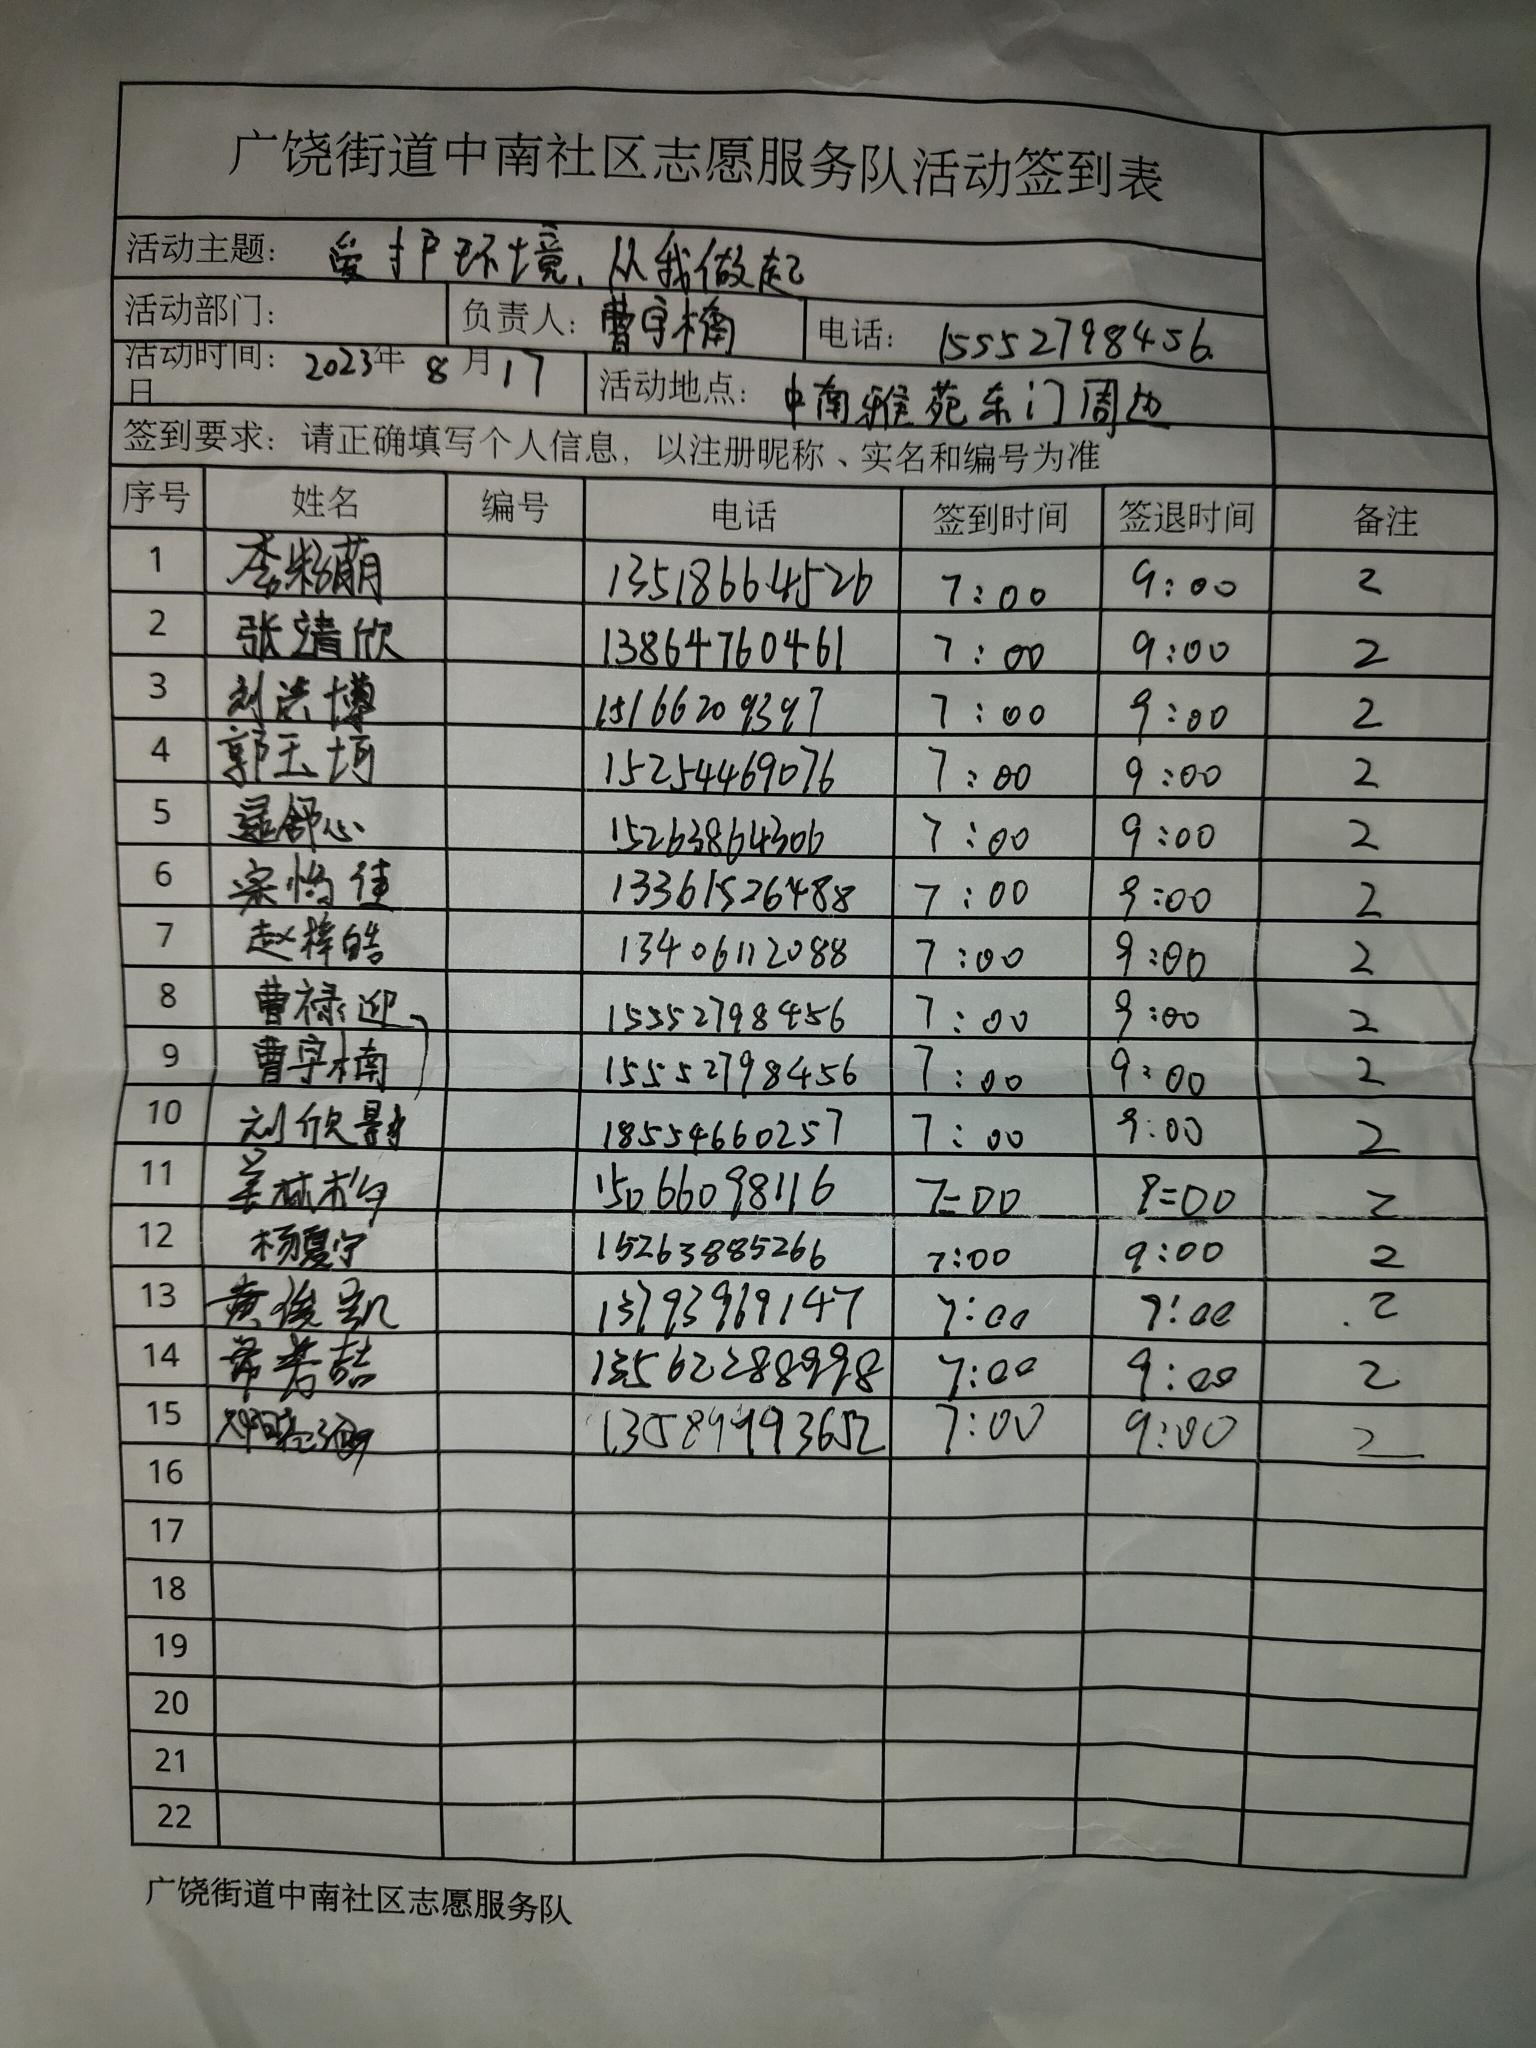 广饶街道中南社区志愿服务队活动签到表
活动主题: 爱护环境、从我做起
活动部门: 负责人: 曹宇楠 电话: 15552798456
活动时间: 2023年 8 月 17 日 活动地点: 中南雅苑东门周边
签到要求: 请正确填写个人信息, 以注册昵称、实名和编号为准
序号 姓名 编号 电话 签到时间 签退时间 备注
1 李 萌 13518664526 7:00 9:00 2
2 张靖欣 13864760461 7:00 9:00 2
3 刘浩博 15166209397 7:00 9:00 2
4 郭玉坷 15254469076 7:00 9:00 2
5 舒心 15263864306 7:00 9:00 2
6 佳 13361526488 7:00 9:00 2
7 赵梓皓 13406112088 7:00 9:00 2
8 曹禄迎 15552798456 7:00 9:00 2
9 曹宇楠 15552798456 7:00 9:00 2
10 刘欣 18554660257 7:00 9:00 2
11 姜林 15066098116 7:00 9:00 2
12 杨夏宁 15263885266 7:00 9:00 2
13 黄俊凯 13793969147 7:00 9:00 2
14 喆 13562288998 7:00 9:00 2
15 7:00 9:00 2
16
17
18
19
20
21
22
广饶街道中南社区志愿服务队